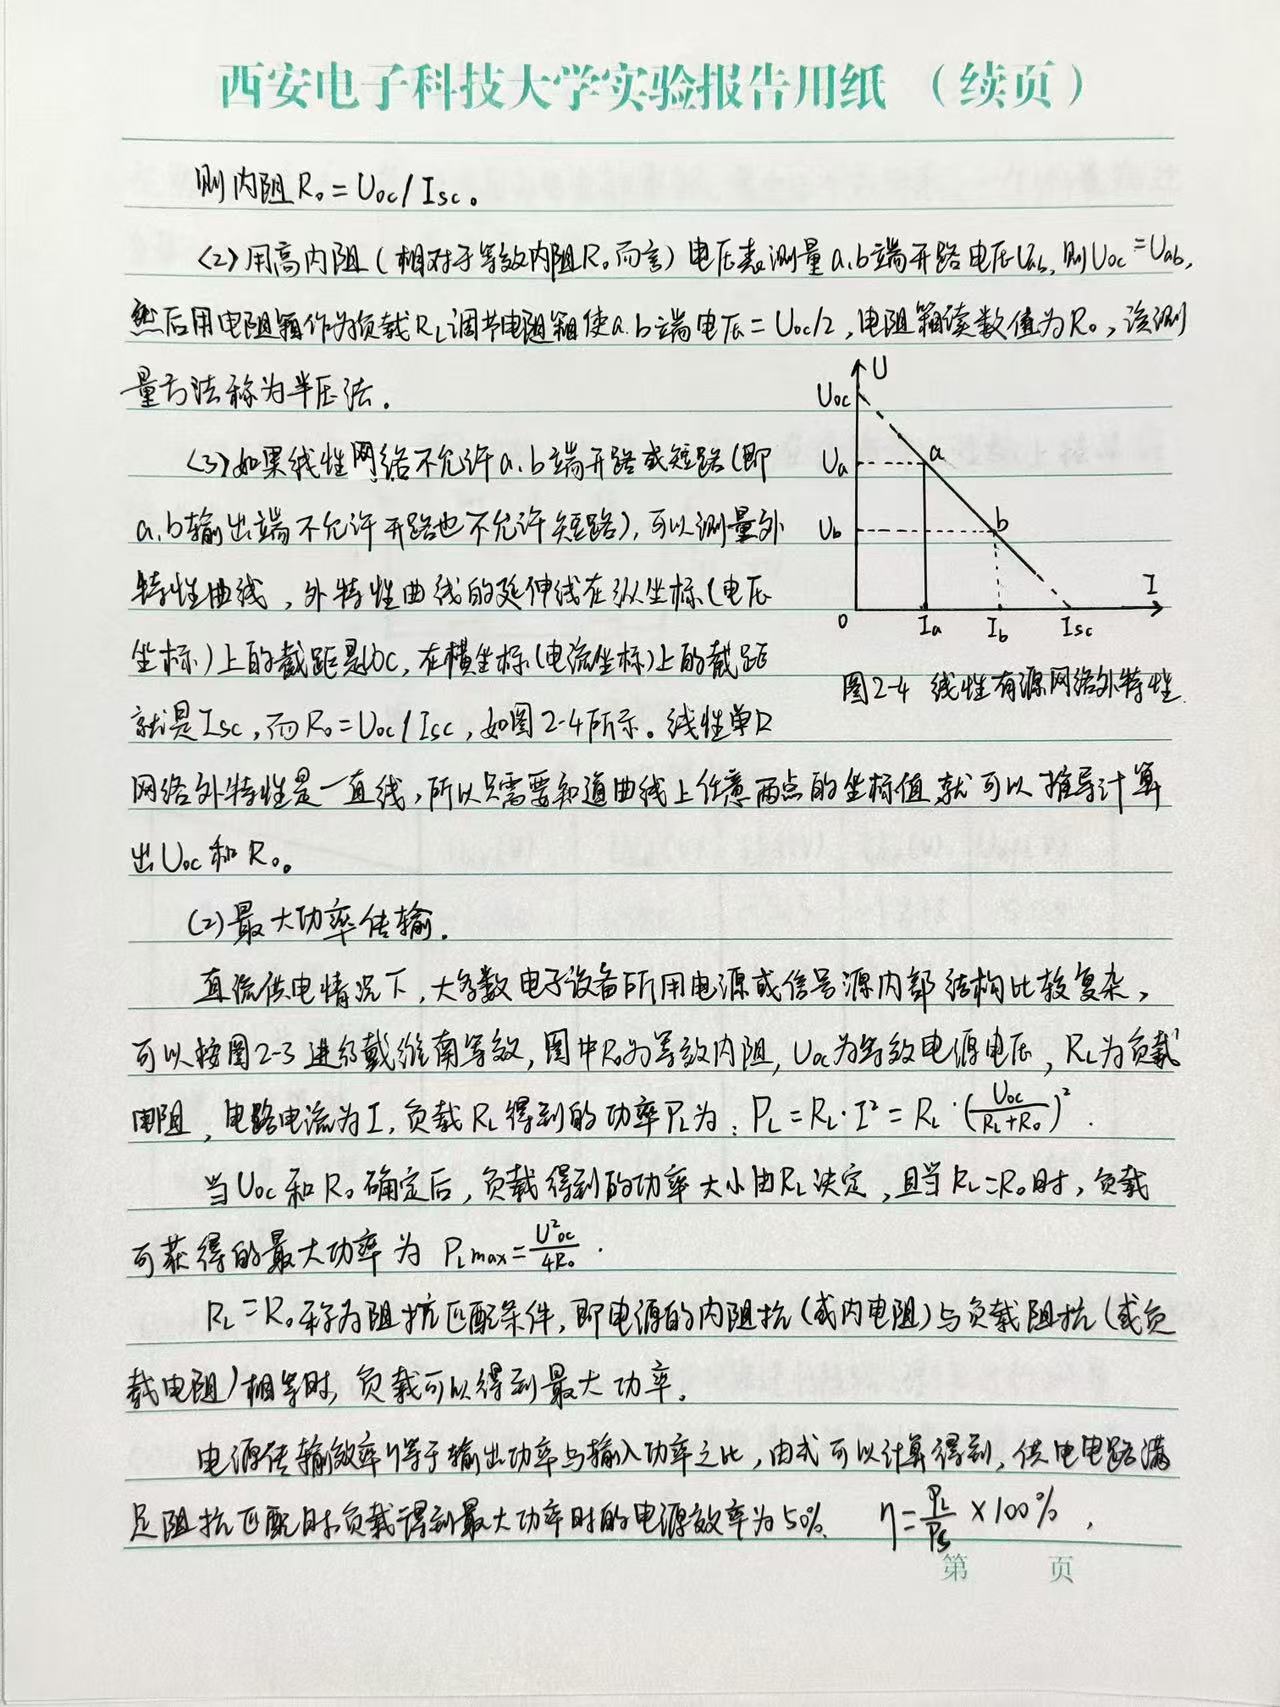 西安电子科技大学实验报告用纸（续页）
则内阻R₀=Uoc/Isc。
(2)用高内阻(相对于等效内阻R₀而言)电压表测量a.b端开路电压Uab,则Uoc=Uab,
然后用电阻箱作为负载RL调节电阻箱使a.b端电压=Uoc/2,电阻箱读数值为R₀,该测
量方法称为半压法.
(3)如果线性网络不允许a.b端开路或短路(即
a.b输出端不允许开路也不允许短路),可以测量外
特性曲线,外特性曲线的延伸线在纵坐标(电压
坐标)上的截距是Uoc,在横坐标(电流坐标)上的截距
就是Isc,而R₀=Uoc/Isc,如图2-4所示。线性单口
U
Uoc
Ua
a
Ub
b
I
0
Ia
Ib
Isc
图2-4 线性有源网络外特性.
网络外特性是一直线,所以只需要知道曲线上任意两点的坐标值,就可以推导计算
出Uoc和R₀。
(2)最大功率传输.
直流供电情况下,大多数电子设备所用电源或信号源内部结构比较复杂,
可以按图2-3进行戴维南等效,图中R₀为等效内阻,Uoc为等效电源电压,RL为负载
电阻,电路电流为I,负载RL得到的功率PL为:PL=RL·I²=RL·(Uoc/(RL+R₀))².
当Uoc和R₀确定后,负载得到的功率大小由RL决定,且当RL=R₀时,负载
可获得的最大功率为 PLmax=U²oc/4R₀.
RL=R₀称为阻抗匹配条件,即电源的内阻抗(或内电阻)与负载阻抗(或负
载电阻)相等时,负载可以得到最大功率.
电源传输效率η等于输出功率与输入功率之比,由式可以计算得到,供电电路满
足阻抗匹配时负载得到最大功率时的电源效率为50%. η=PL/Ps×100%,
第 页